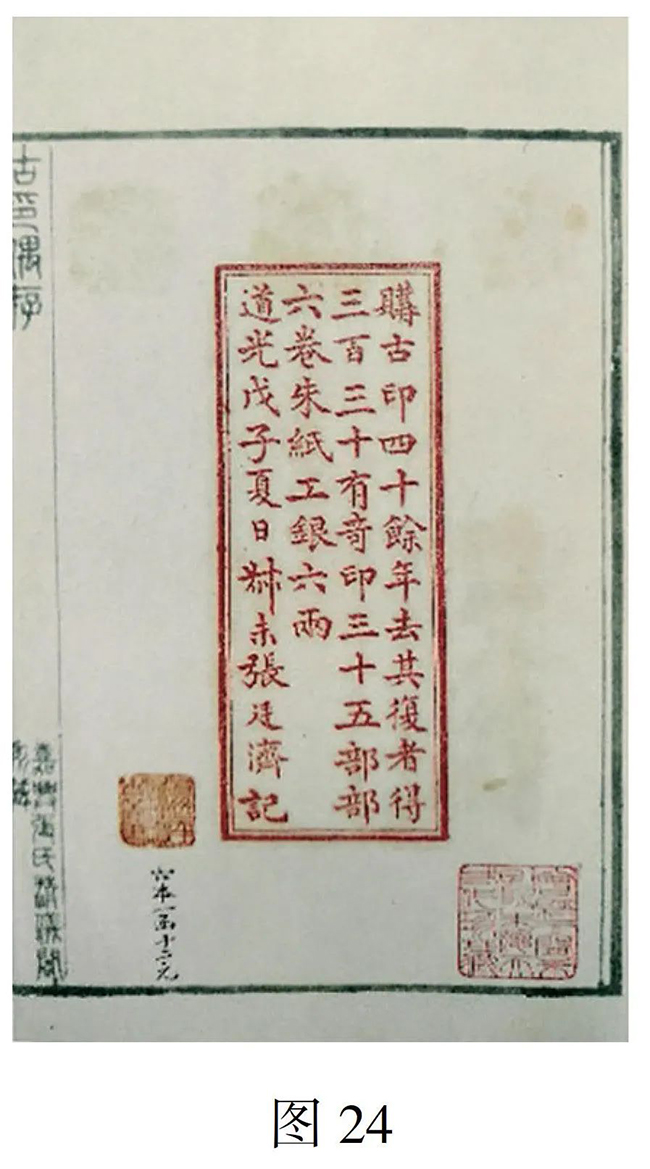 購古印四十餘年去其復者得
三百三十有奇印三十五部部
六卷朱紙工銀六兩
道光戊子夏日叔未張廷濟記
古印偶存
嘉興張氏清儀閣
六本一函十六元
图 24